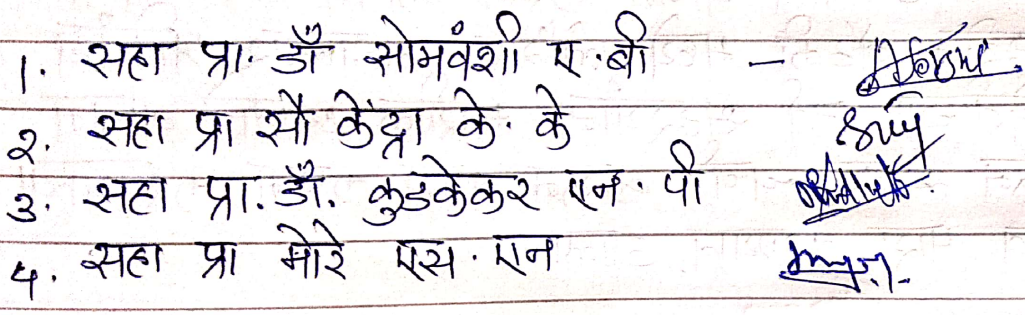 1. सहा प्रा. डॉ सोमवंशी ए.बी -
२. सहा प्रा सौ केंद्रा के. के
३. सहा प्रा. डॉ. कुडकेकर एन. पी
४. सहा प्रा मोरे एस. एन